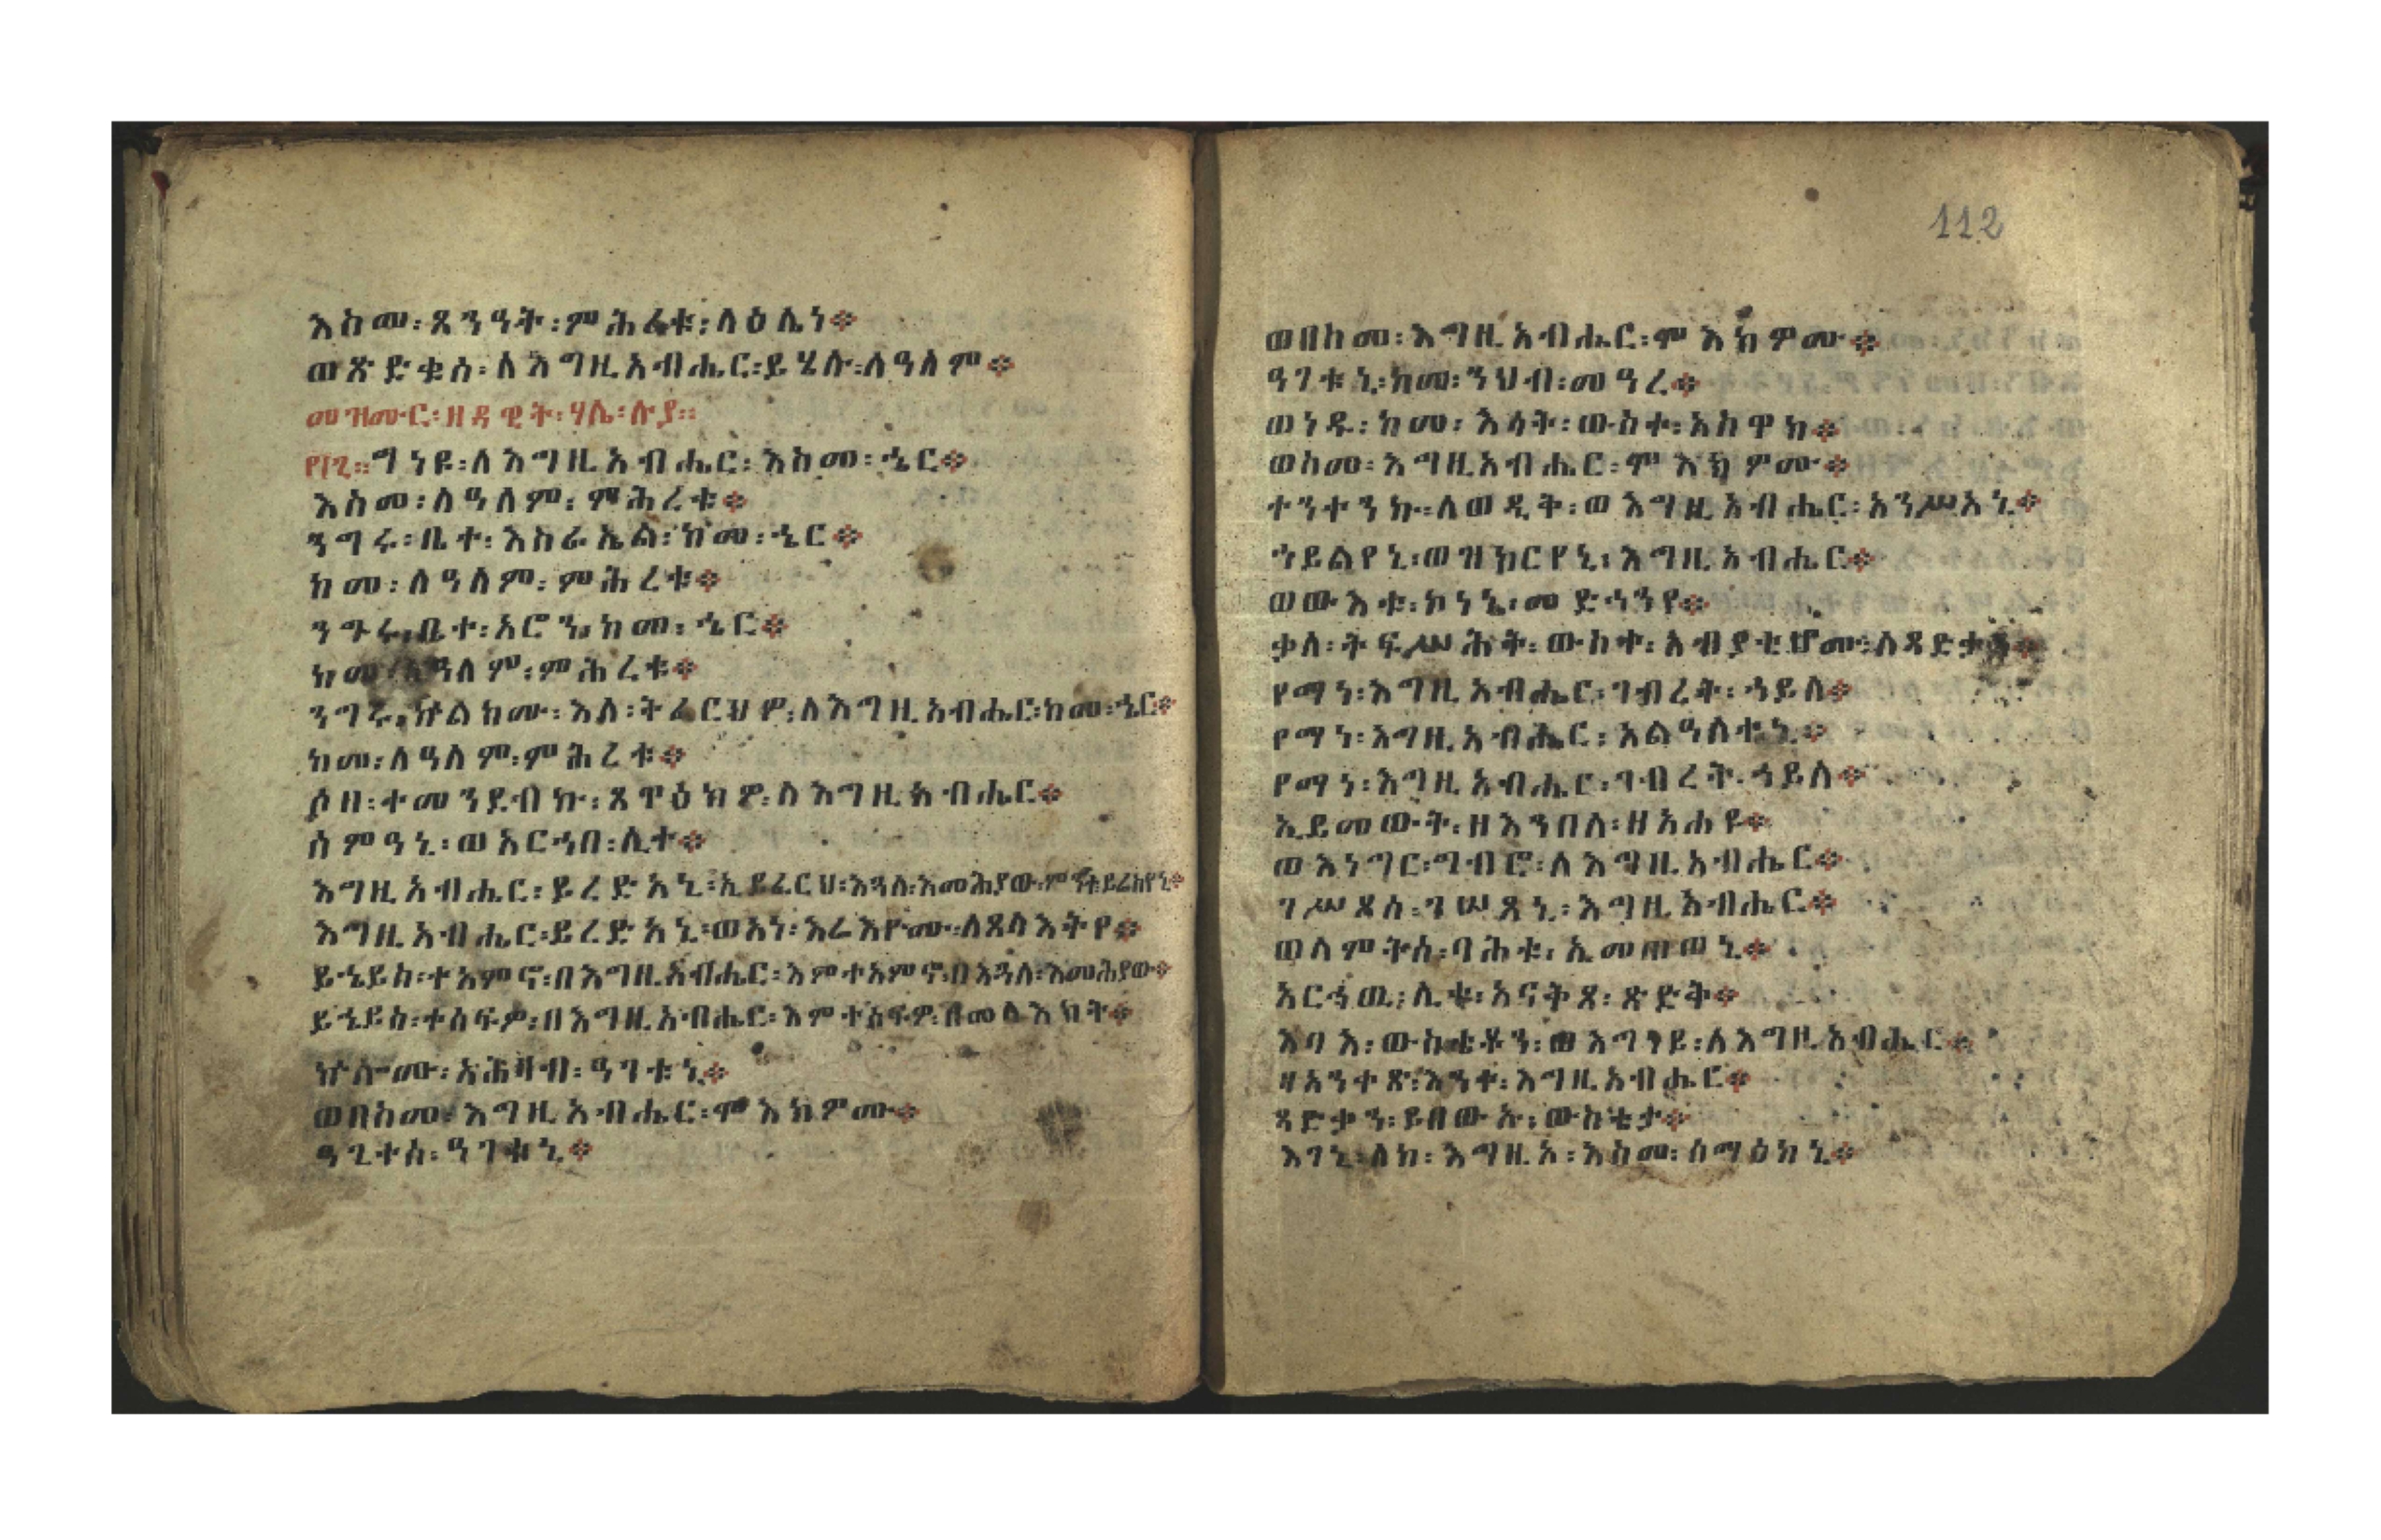 እስመ፡ጸንዓት፡ምሕረቱ፡ላዕሌነ፨
ወጽድቁሰ፡ለእግዚአብሔር፡ይሄሉ፡ለዓለም፨
መዝሙር፡ዘዳዊት፡ሃሌ፡ሉያ።
፻፲፯።ግነዩ፡ለእግዚአብሔር፡እስመ፡ኄር፨
እስመ፡ለዓለም፡ምሕረቱ፨
ንግሩ፡ቤተ፡እስራኤል፡ከመ፡ኄር፨
ከመ፡ለዓለም፡ምሕረቱ፨
ንግሩ፡ቤተ፡አሮን፡ከመ፡ኄር፨
ከመ፡ለዓለም፡ምሕረቱ፨
ንግሩ፡ኵልክሙ፡እለ፡ትፈርህዎ፡ለእግዚአብሔር፡ከመ፡ኄር፨
ከመ፡ለዓለም፡ምሕረቱ፨
ሶበ፡ተመንደብኩ፡ጸዋዕክዎ፡ለእግዚአብሔር፨
ሰምዓኒ፡ወአርኀበ፡ሊተ፨
እግዚአብሔር፡ይረድአኒ፡ኢይፈርህ፡እጓለ፡እመሕያው፡ምንተ፡ይሬስየኒ፨
እግዚአብሔር፡ይረድአኒ፡ወአነ፡እሬእዮሙ፡ለጸላእትየ፨
ይኄይስ፡ተአምኖ፡በእግዚአብሔር፡እምተአምኖ፡በእጓለ፡እመሕያው፨
ይኄይስ፡ተሰፍዎ፡በእግዚአብሔር፡እምተሰፍዎ፡በመላእክት፨
ኵሎሙ፡አሕዛብ፡ዓገቱኒ፨
ወበስመ፡እግዚአብሔር፡ሞእክዎሙ፨
ዓጊተሰ፡ዓገቱኒ፨
112
ወበስመ፡እግዚአብሔር፡ሞእክዎሙ፨
ዓገቱኒ፡ከመ፡ንህብ፡መዓረ፨
ወነዱ፡ከመ፡እሳት፡ውስተ፡አስዋክ፨
ወስመ፡እግዚአብሔር፡ሞእክዎሙ፨
ተንተንኩ፡ለወዲቅ፡ወእግዚአብሔር፡አንሥአኒ፨
ኀይልየኒ፡ወዝክርየኒ፡እግዚአብሔር፨
ወውእቱ፡ኮነኒ፡መድኀንየ፨
ቃለ፡ትፍሥሕት፡ውስተ፡አብያቲሆሙ፡ለጻድቃን፨
የማነ፡እግዚአብሔር፡ገብረት፡ኀይለ፨
የማነ፡እግዚአብሔር፡አልዓለተኒ፨
የማነ፡እግዚአብሔር፡ገብረት፡ኀይለ፨
ኢይመውት፡ዘእንበለ፡ዘአሐዩ፨
ወእነግር፡ግብሮ፡ለእግዚአብሔር፨
ገሥጾሰ፡ገሠጸኒ፡እግዚአብሔር፨
ወለሞትሰ፡ባሕቱ፡ኢመጠወኒ፨
አርኅዉ፡ሊተ፡አናቅጸ፡ጽድቅ፨
እባእ፡ውስቴቶን፡ወእግነይ፡ለእግዚአብሔር፨
ዛአንቀጽ፡እንተ፡እግዚአብሔር፨
ጻድቃን፡ይበውኡ፡ውስቴታ፨
እገኒ፡ለከ፡እግዚአ፡እስመ፡ሰማዕከኒ፨